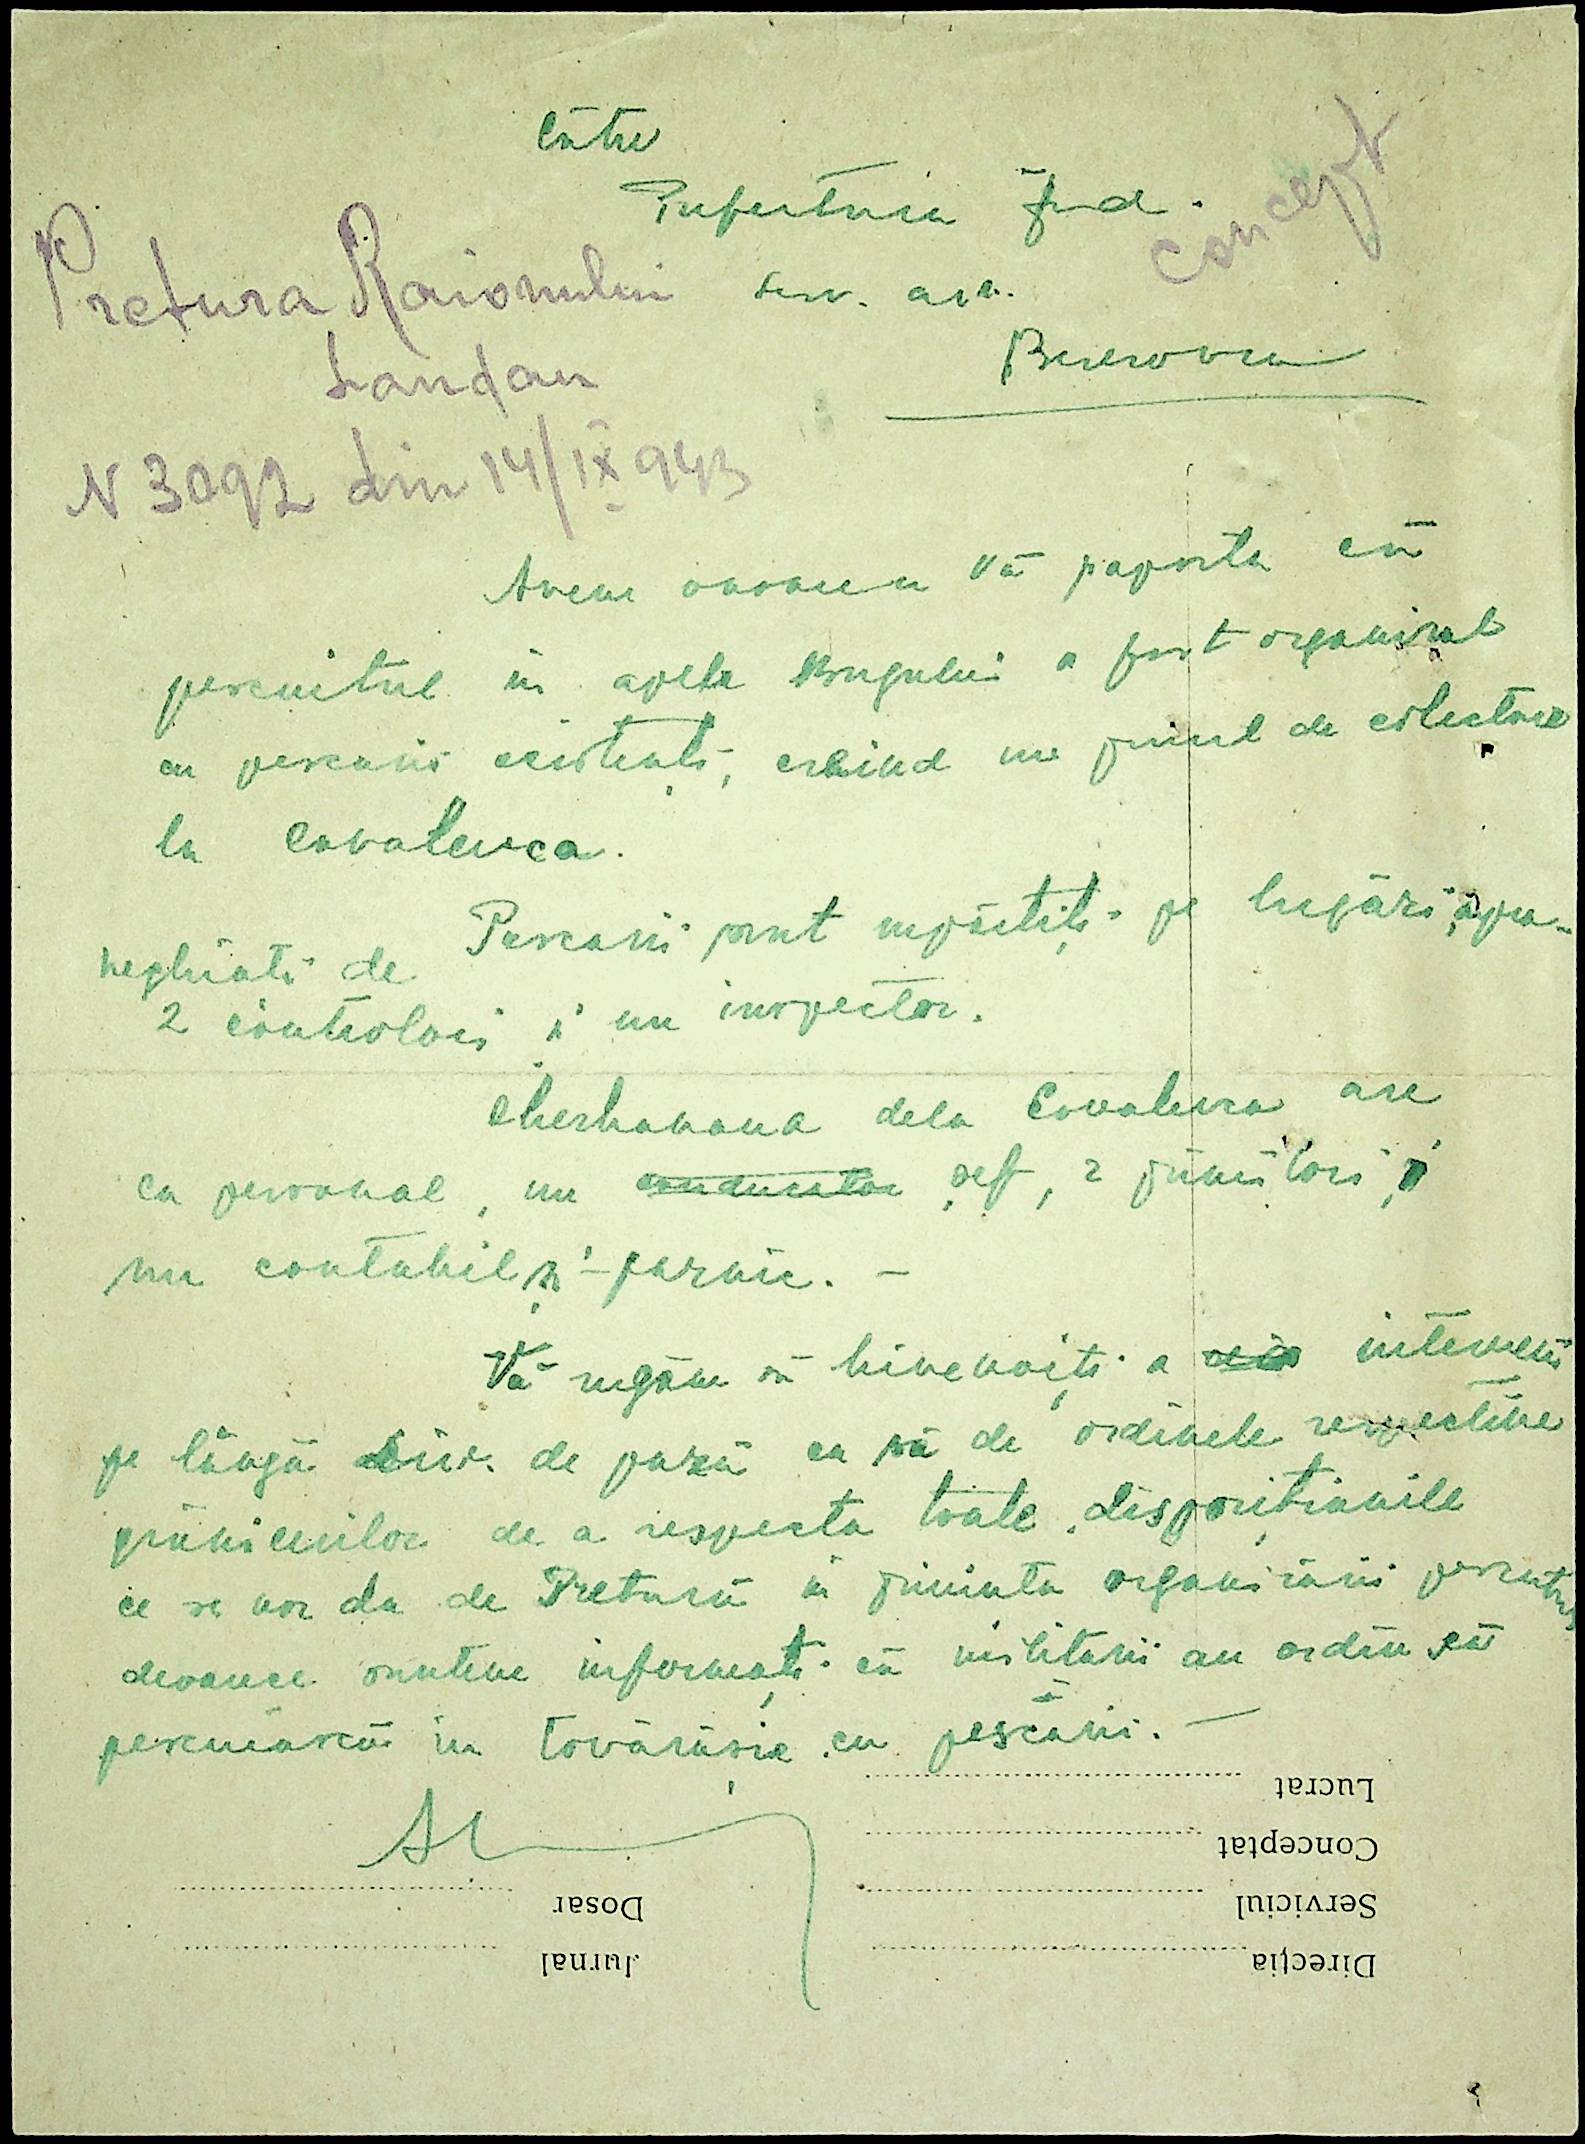 Către
Prefectura Jud.
concept
Serv. agr.
Pretura Raionului
Landau
Beresovca
N 3092 din 14/IX 943
Avem onoarea vă raporta că
pescuitul în apele Bugului a fost organizat
cu pescarii existenți, creind un punct de colectare
la Covalevca.
Pescarii sunt împărțiți pe brigăzi, supra-
veghiați de
2 controlori și un inspector.
Cherhanaua dela Covalevca are
ca personal, un conductor șef, 2 primitori și
un contabil și - paznic. -
Vă rugăm să binevoiți a interveni
pe lângă Div. de pază ca să de ordinele respective
grănicerilor de a respecta toate dispozițiunile
ce se vor da de Pretură în privința organizării pescuitului
deoarece suntem informați că militarii au ordin să
pescuiască în tovărășie cu pescarii. -
Lucrat
Conceptat
Serviciul
Dosar
Direcția
Jurnal